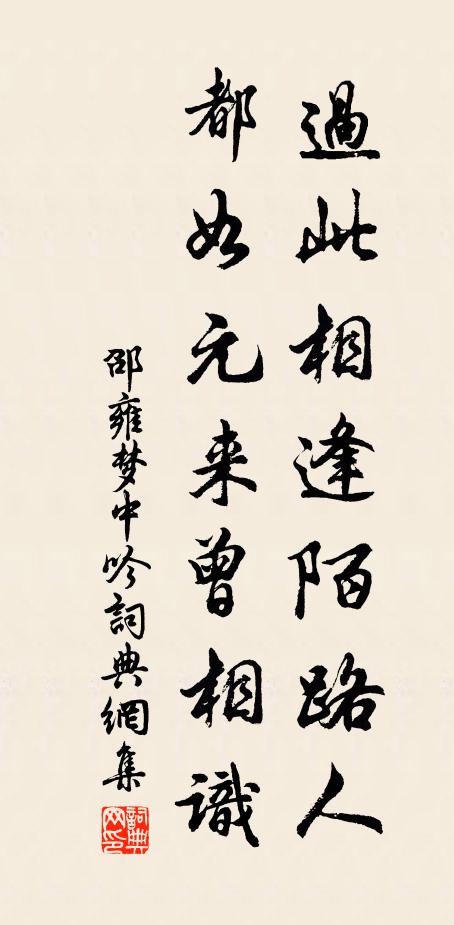 過此相逢陌路人
都如元来曾相識
邵雍梦中吟詞典網集
詞典
网印